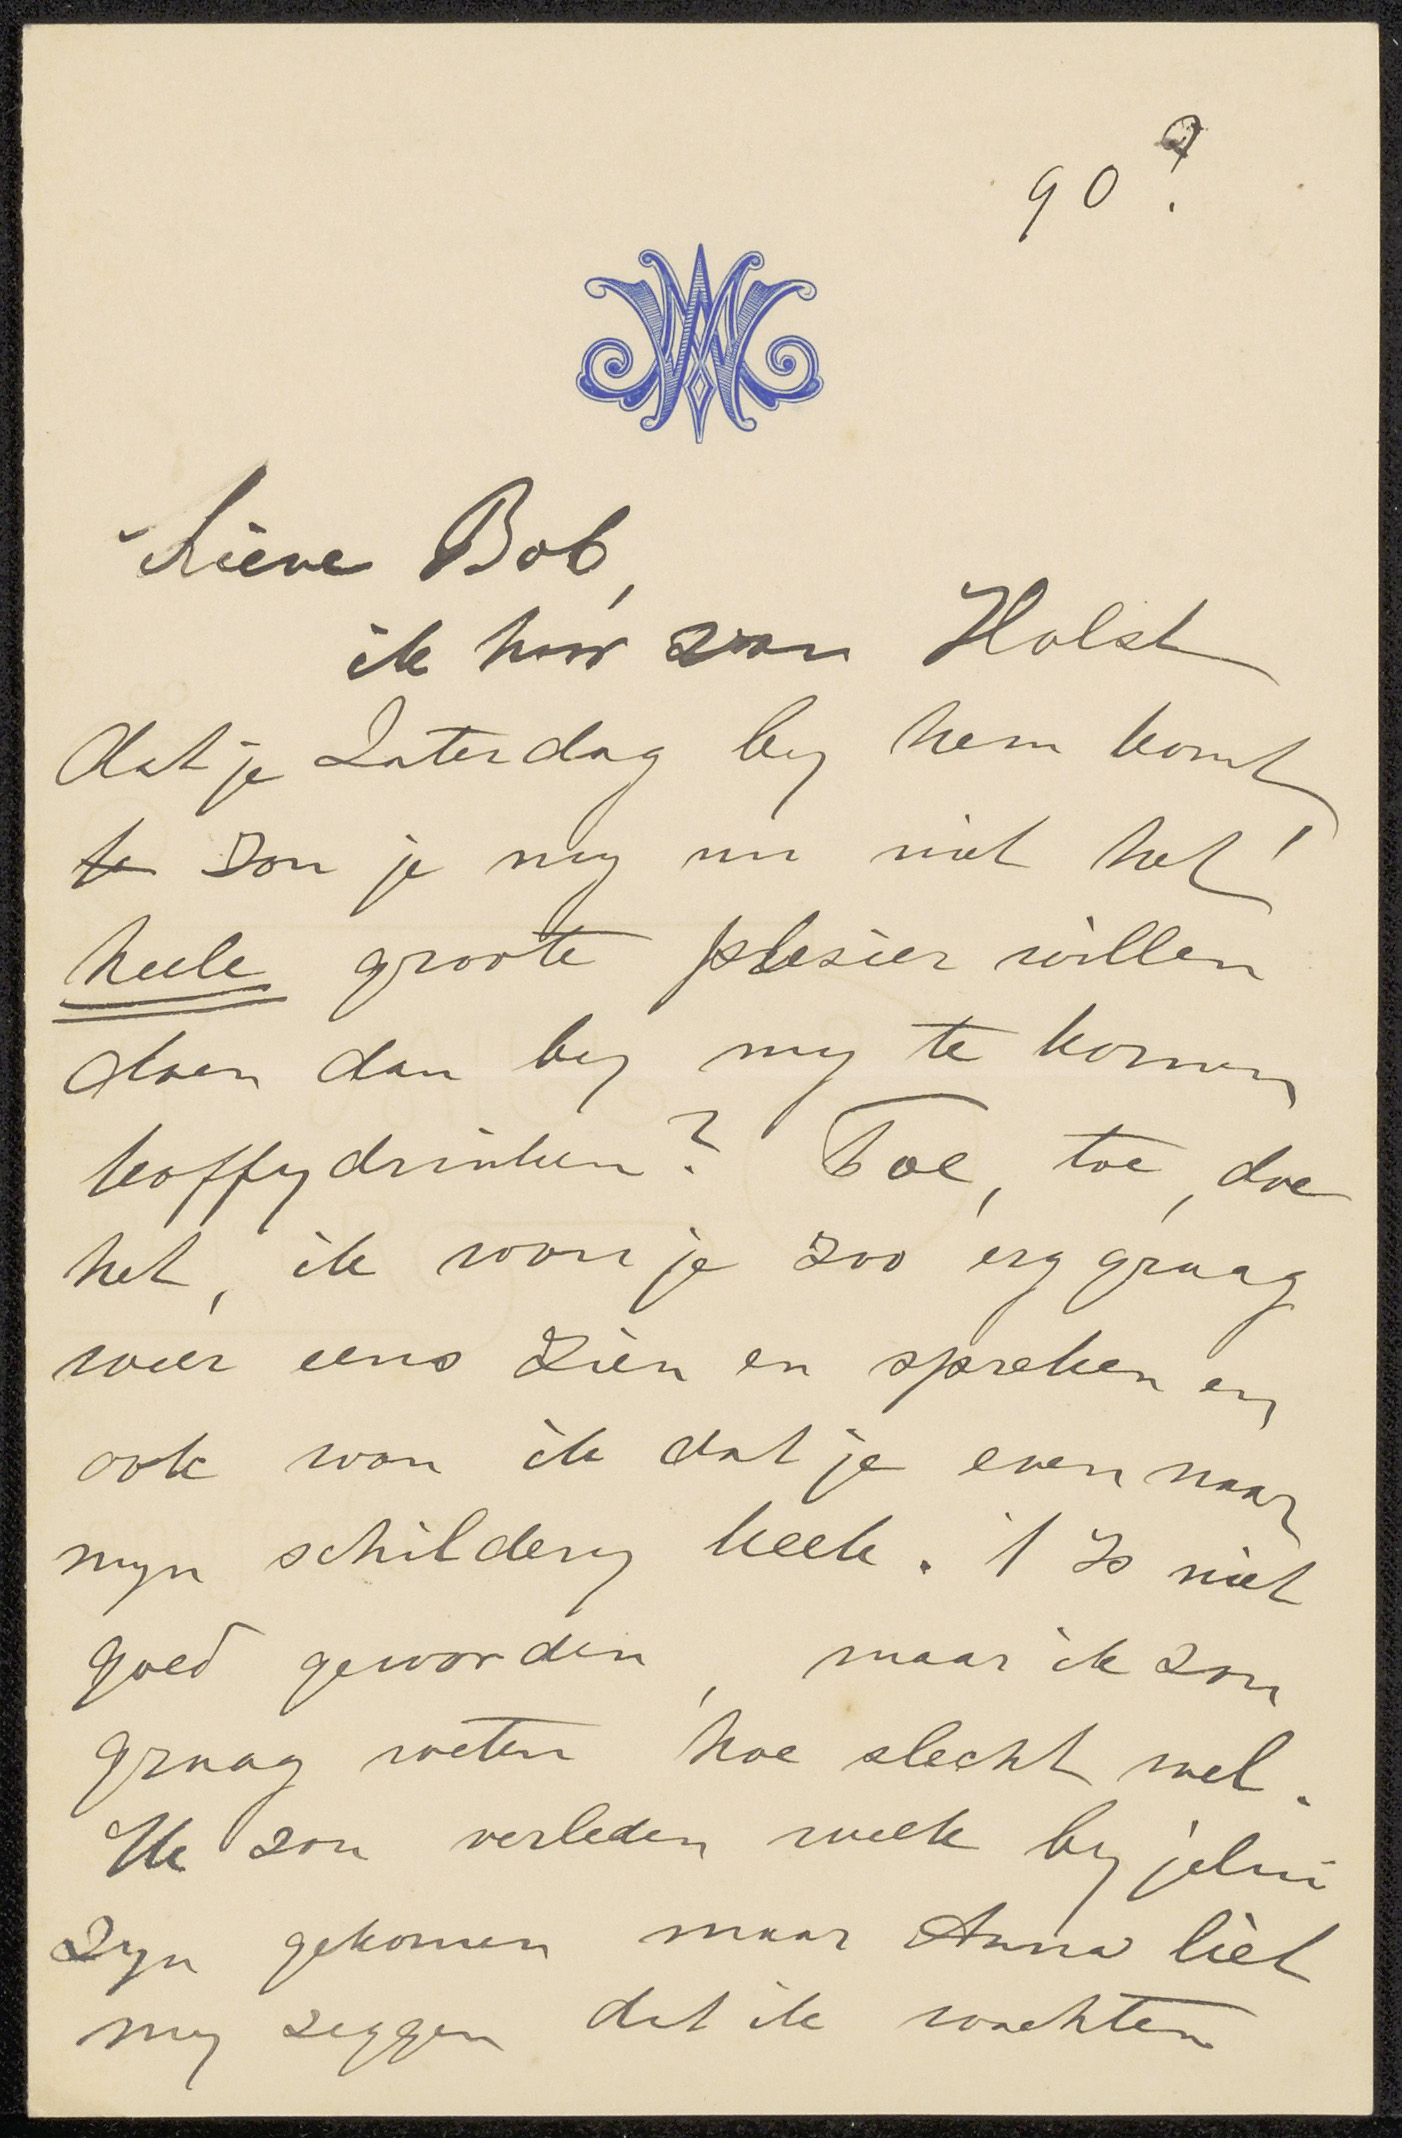 90?
Lieve Bob,
ik hoor van Holst
dat je Zaterdag by hem komt
te zou je my nu niet het
heele groote plesier willen
doen dan by my te komen
koffydrinken? Toe, toe, doe
het, ik wou je zoo erg graag
weer eens zien en spreken en
ook wou ik dat je even naar
myn schildery keek. 't Is niet
goed geworden, maar ik zou
graag weten hoe slecht wel.
Ik zou verleden week by jelui
zyn gekomen maar Anna liet
my zeggen dat ik wachten